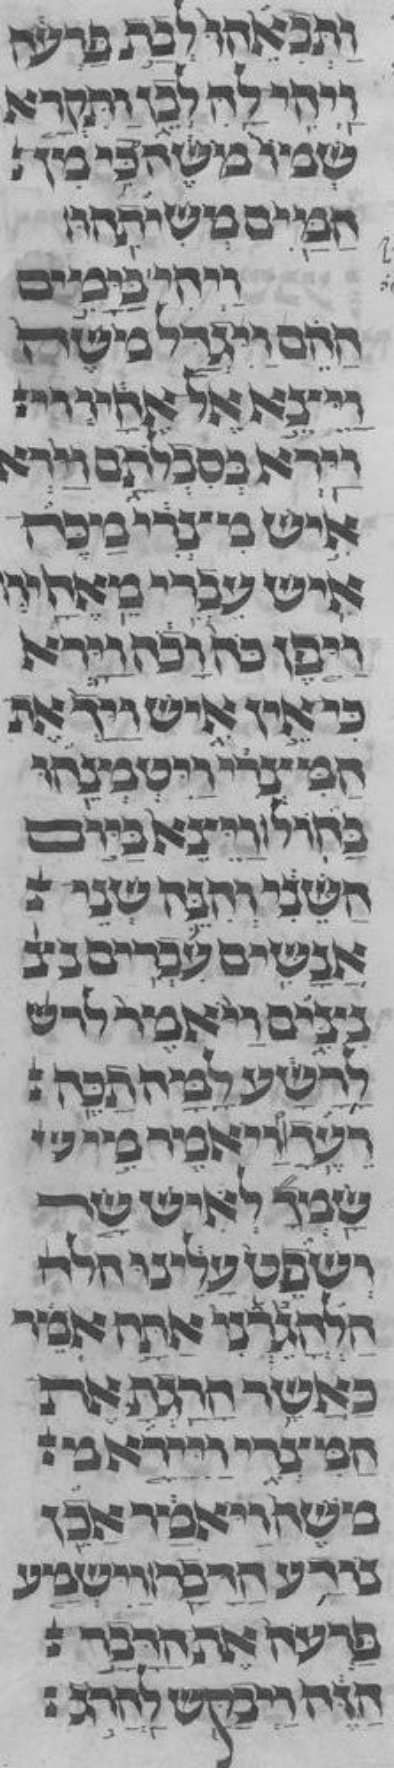 ותבאהו לבת פרעה
ויהי לה לבן ותקרא
שמו משה כי מן
המים משיתהו
ויהי בימים
ההם ויגדל משה
ויצא אל אחיו וי
וירא בסבלתם וירא
איש מצרי מכה
איש עברי מאחיו
ויפן כה וכה וירא
כי אין איש ויך את
המצרי ויטמנהו
בחול ויצא ביום
השני והנה שני
אנשים עברים נצ
נצים ויאמר לרש
לרשע למה תכה
רעך ויאמר מי ש
שמך לאיש שר
ושפט עלינו הלה
הלהרגני אתה אמר
כאשר הרגת את
המצרי ויירא מ
משה ויאמר אכן
נודע הדבר וישמע
פרעה את הדבר
הזה ויבקש להרג